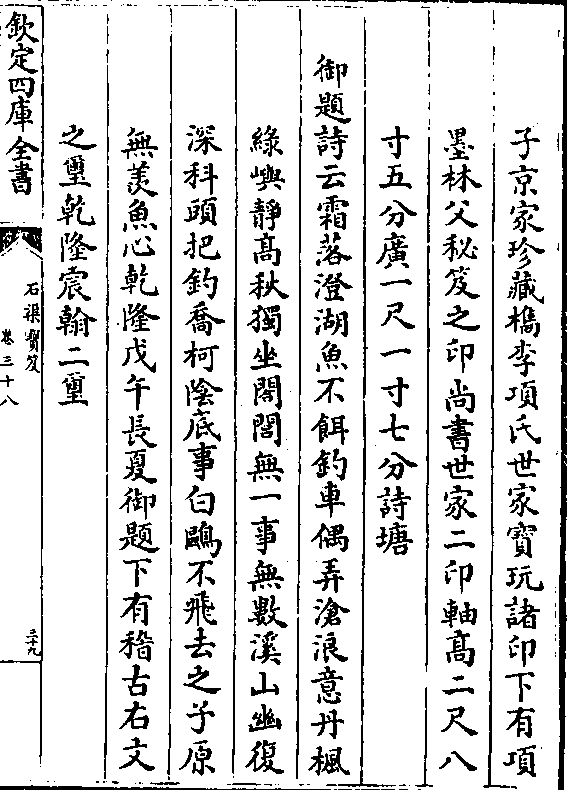 子京家珍藏檇李項氏世家寶玩諸印下有項
墨林父秘笈之印尚書世家二印軸高二尺八
寸五分廣一尺一寸七分詩塘
御題詩云霜落澄湖魚不餌釣車偶弄滄浪意丹楓
綠嶼靜高秋獨坐閤閤無一事無數溪山幽復
深科頭把釣喬柯陰底事白鷗不飛去之子原
無羨魚心乾隆戊午長夏御題下有稽古右文
之璽乾隆宸翰二璽
欽定四庫全書
石渠寶笈
卷三十八
三十九